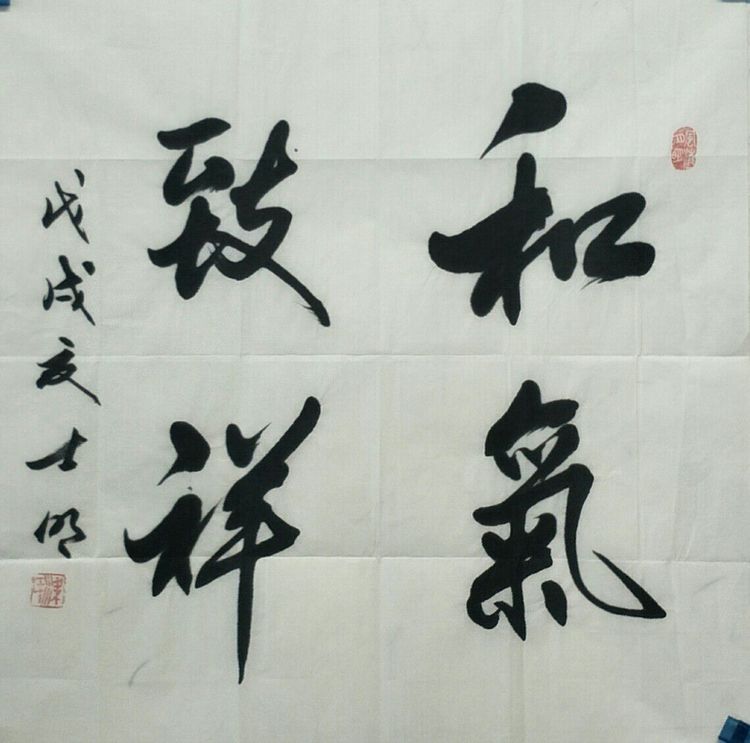 和氣
致祥
戊戌夏士明